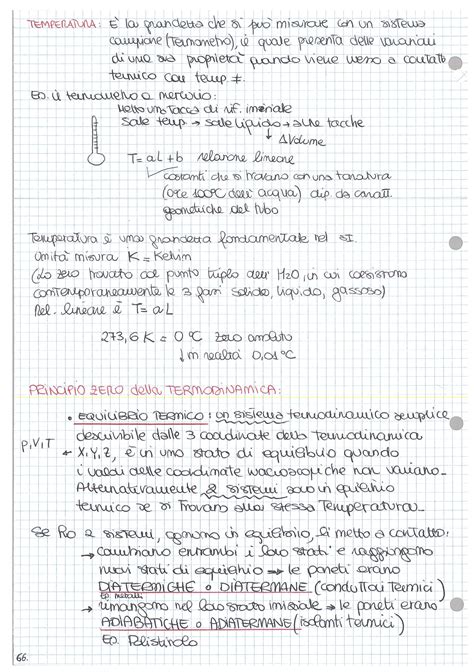 TEMPERATURA: È la grandezza che si può misurare con un sistema
campione (Termometro), il quale presenta delle variazioni
di una sua proprietà quando viene messo a contatto
termico con temp ≠.
Es. il termometro a mercurio:
Metto una tacca di rif. iniziale
Sale temp → sale liquido → altre tacche
↓ ΔVolume
T = aL + b relazione lineare
costanti che si trovano con una taratura
(ore 100°C dell' acqua) dip da caratt
geometriche del tubo
Temperatura è una grandezza fondamentale nel SI.
Unità misura K = Kelvin
(Lo zero trovato col punto triplo dell' H2O, in cui coesistono
contemporaneamente le 3 fasi solido, liquido, gassoso)
Rel. lineare è T = aL
273,6 K = 0 °C zero assoluto
↓ in realtà 0,01 °C
PRINCIPIO ZERO della TERMODINAMICA:
• EQUILIBRIO TERMICO: un sistema termodinamico semplice
descrivibile dalle 3 coordinate della termodinamica
P,V,T ← X,Y,Z, è in uno stato di equilibrio quando
i valori delle coordinate macroscopiche non variano.
Alternativamente 2 sistemi sono in equilibrio
termico se si trovano alla stessa Temperatura.
Se ho 2 sistemi, ognuno in equilibrio, li metto a contatto:
→ cambiano entrambi i loro stati e raggiungono
nuovi stati di equilibrio → le pareti erano
DIATERMICHE o DIATERMANE (conduttori termici)
Es. metalli
→ rimangono nel loro stato iniziale → le pareti erano
ADIABATICHE o ADIATERMANE (isolanti termici)
Es. Polistirolo
66.